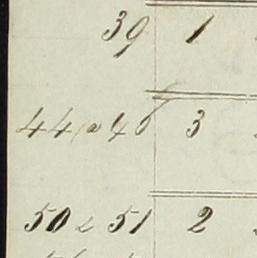 39 1
44 a 46 3
50 & 51 2